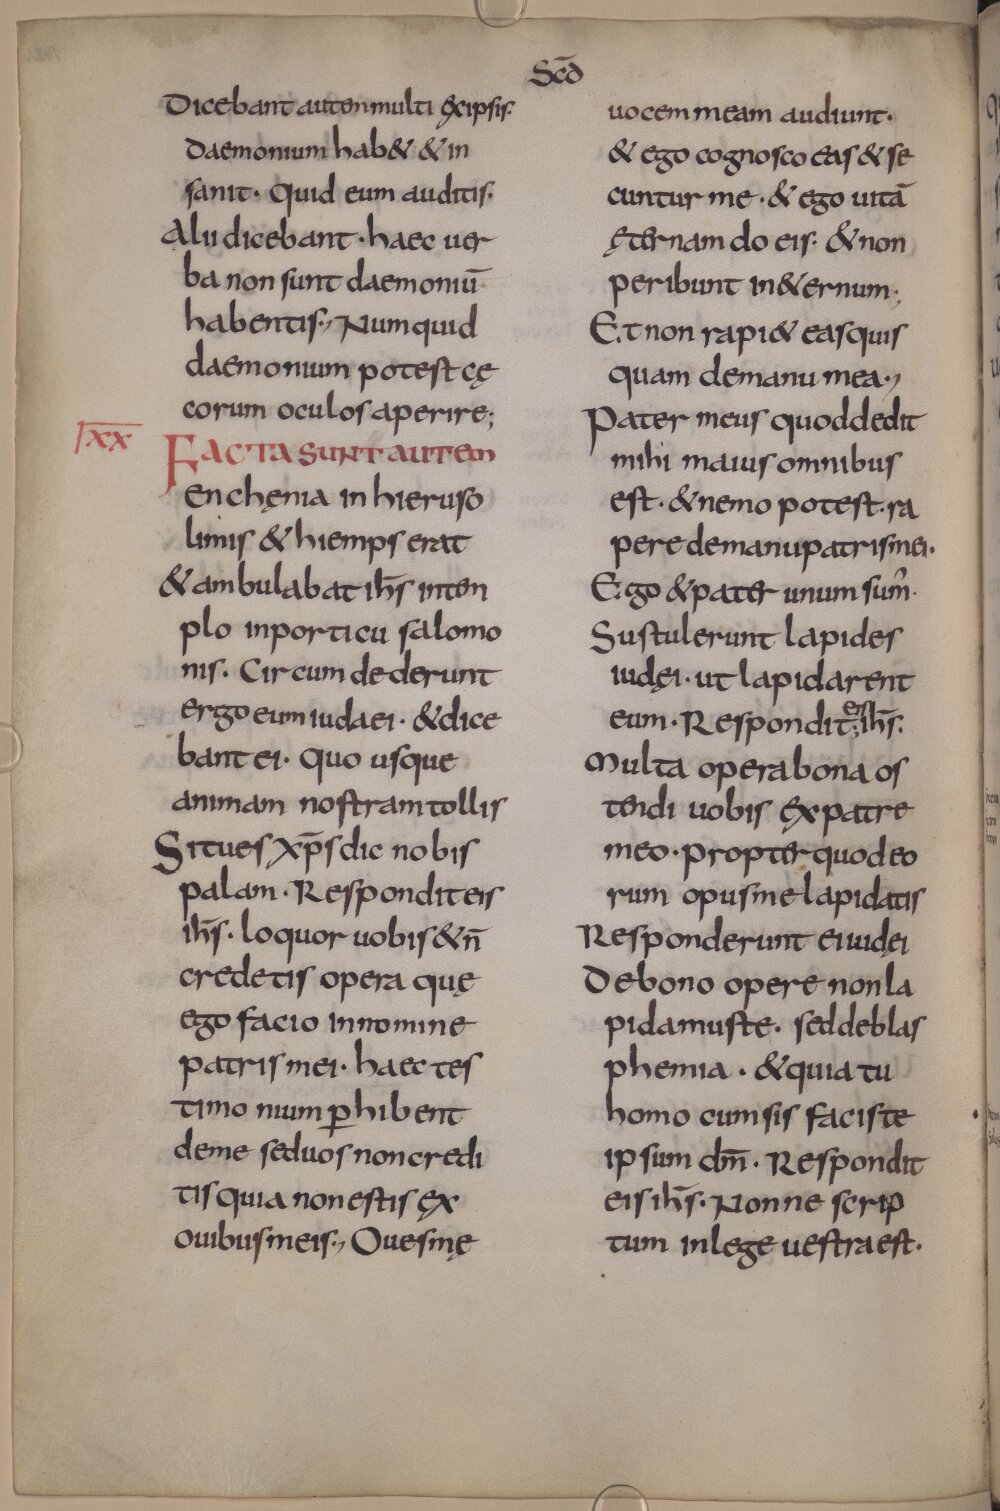 Scd̄
Dicebant autem multi ex ipsis·
daemonium hab& & in
sanit· Quid eum auditis·
Alii dicebant· haec uer
ba non sunt daemoniū
habentis·, Numquid
daemonium potest cę
corum oculos aperire;
lxx
FACTA SUNT AUTEM
enchęnia in hieruso
limis & hiemps erat
& ambulabat ih̄s in tem
plo in porticu salomo
nis· Circumdederunt
ergo eum iudaei· & dice
bant ei· Quo usque
animam nostram tollis
Si tu es xp̄s dic nobis
palam· Respondit eis
ih̄s· loquor uobis & n̄
credetis opera quę
ego facio in nomine
patris mei· haec tes
timonium ꝑhibent
de me sed uos non credi
tis quia non estis ex
ouibus meis·, Oues mę
uocem meam audiunt·
& ego cognosco eas & se
cuntur me· & ego uitā
ęternam do eis· & non
peribunt in &ernum·,
Et non rapi& eas quis
quam de manu mea·,
Pater meus quod dedit
mihi maius omnibus
est· & nemo potest· ra
pere de manu patris mei·
Ego & pater unum sum̓·
Sustulerunt lapides
iudęi· ut lapidarent
eum· Respondit eis ih̄s·
Multa opera bona os
tendi uobis ex patre
meo· propter quod eo
rum opus me lapidatis
Responderunt ei iudęi
De bono opere non la
pidamus te· sed de blas
phemia· & quia tu
homo cum sis facis te
ipsum dm̄· Respondit
eis ih̄s· Nonne scrip
tum in lege uestra est·